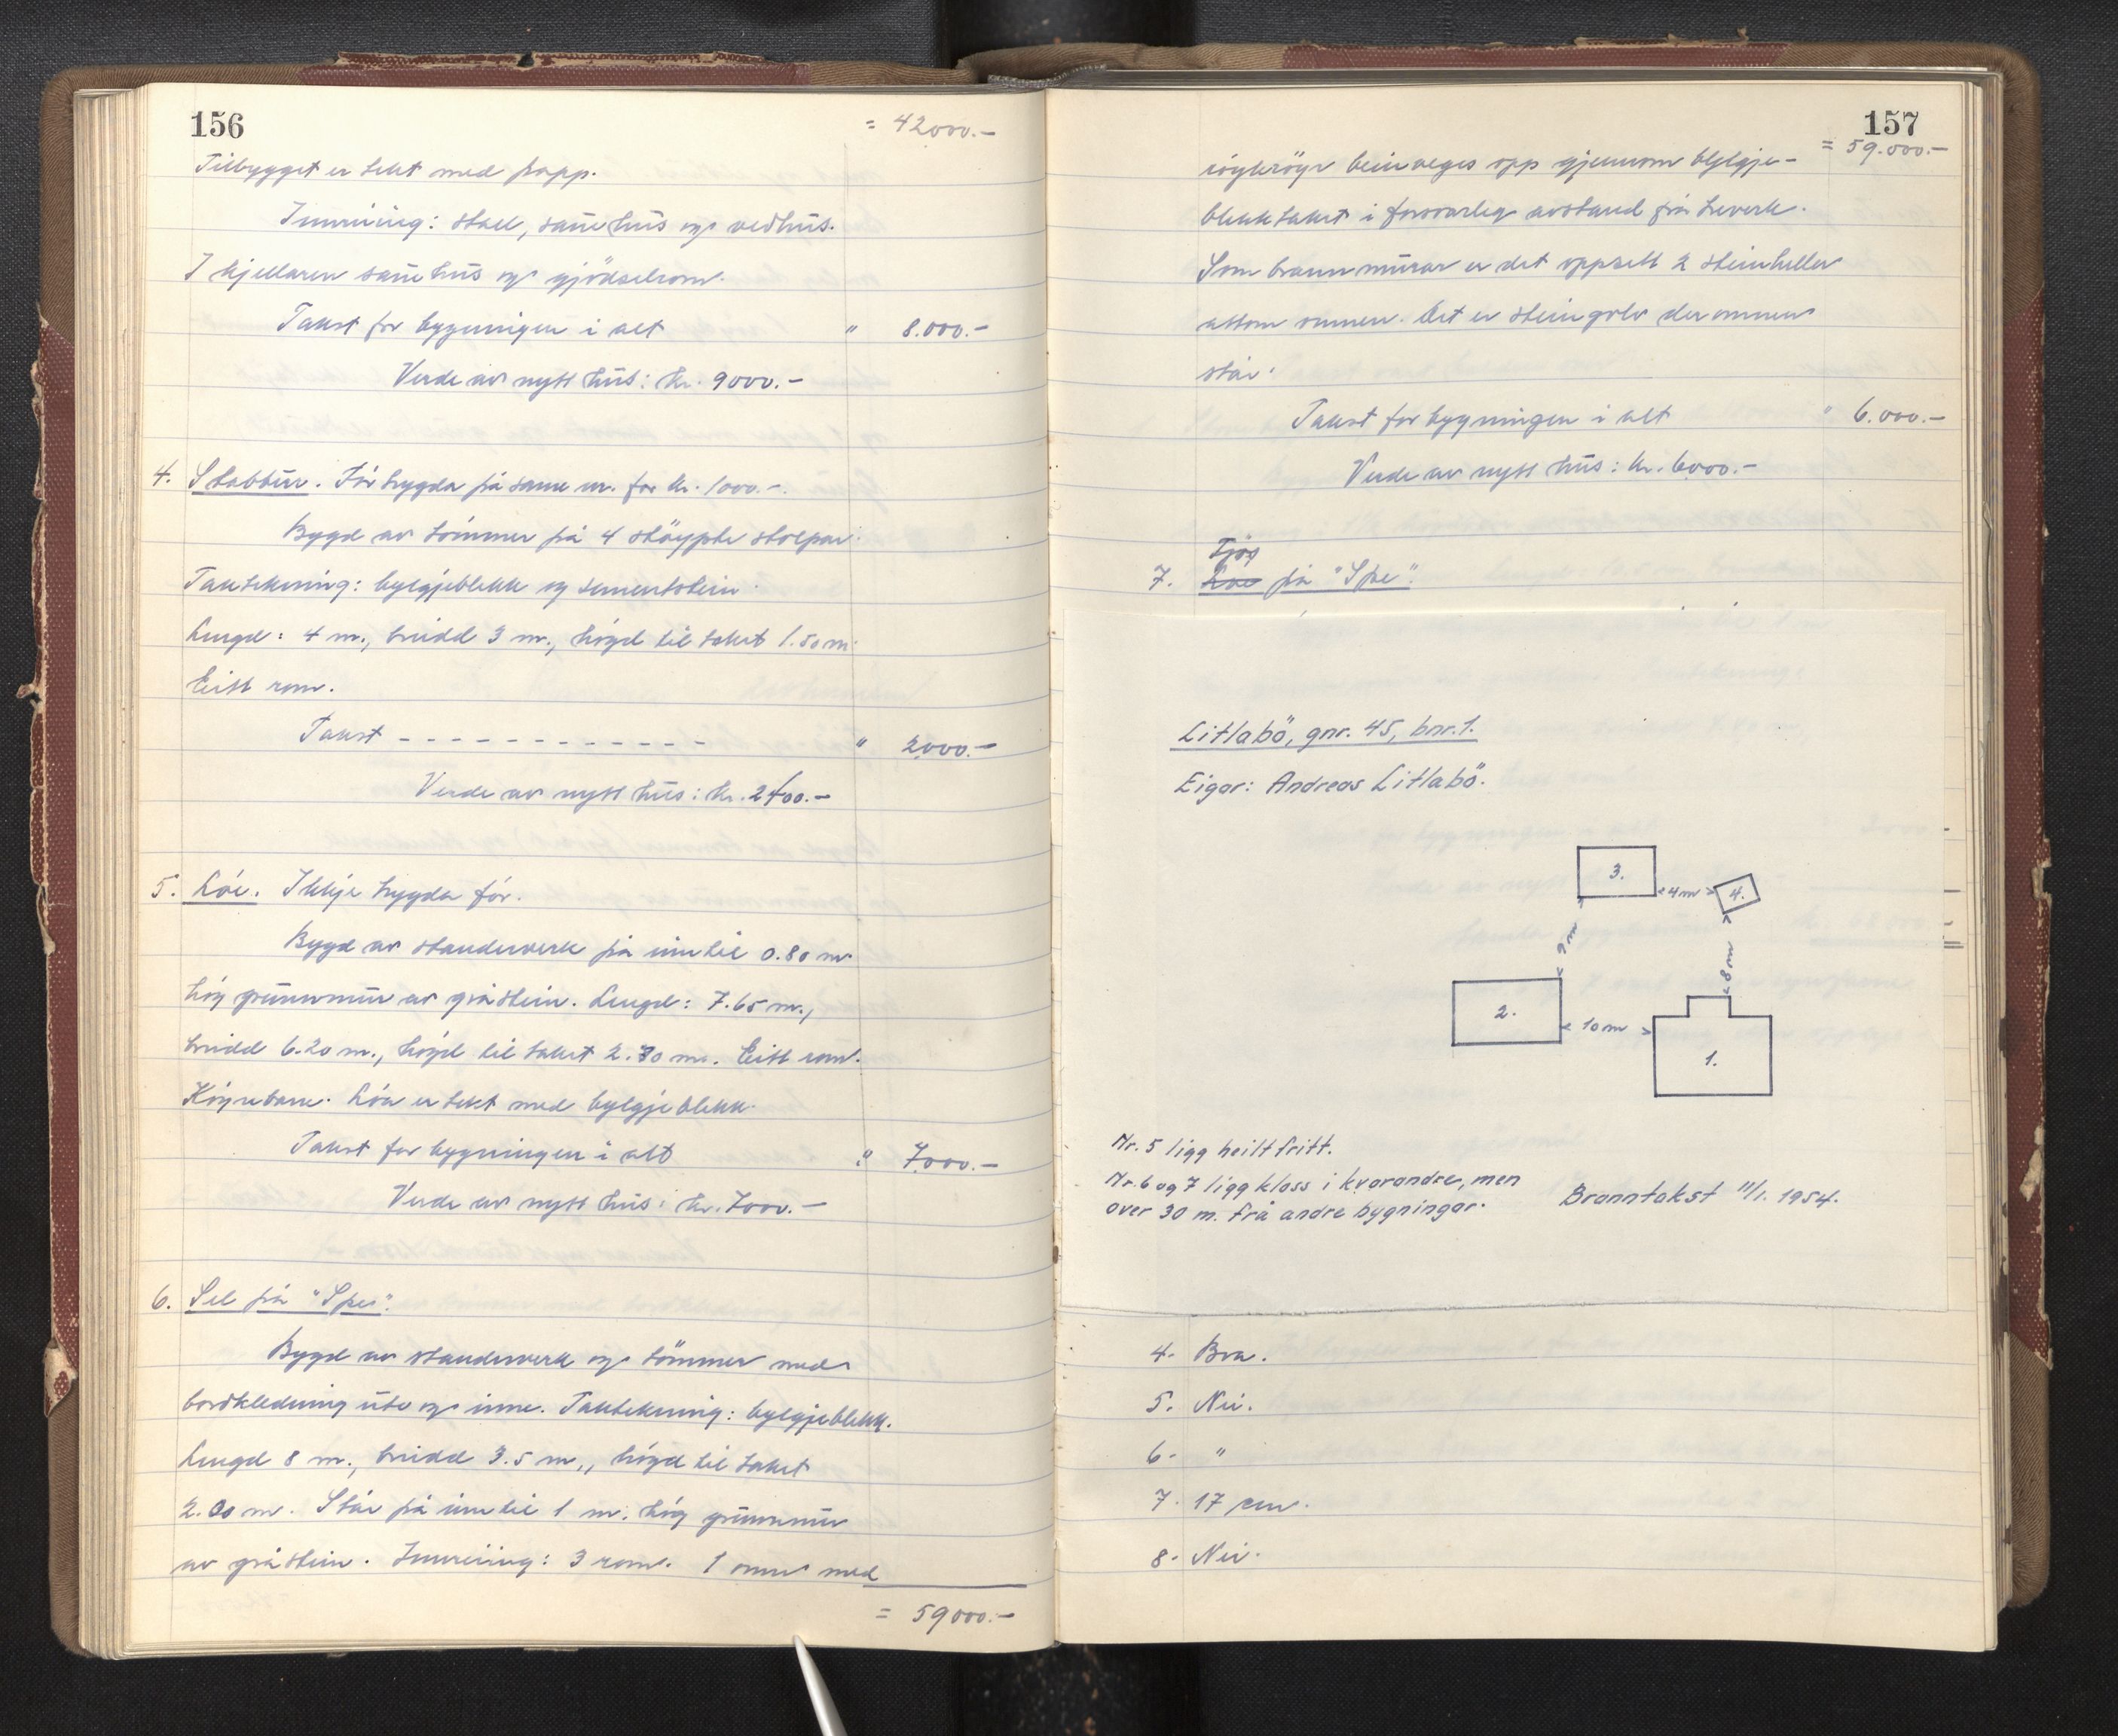 156
= 42000.-
Tilbygget er tekt med papp.
Innreiing: stall, sauehus og vedhus.
I kjellaren sauehus og gjödselrom.
Takst for bygningen i alt " 8.000.-
Verde av nytt hus: kr. 9000.-
4. Stabbur. Før trygda på same nr. for kr. 1000.-.
Bygd av tömmer på 4 støypte stolpar.
Taktekning: bylgjeblekk og sementstein.
Lengd: 4 m., breidd 3 m., högd til taket 1.50 m.
Eitt rom.
Takst - - - - - - - - - - - - " 2000.-
Verde av nytt hus: kr. 2400.-
5. Löe. Ikkje trygda för.
Bygd av standerverk på inntil 0.80 m
hög grunnmur av gråstein. Lengd: 7.65 m.,
breidd 6.20 m., högd til taket 2.30 m. Eitt rom.
Köyrebane. Löa er tekt med bylgjeblekk.
Takst for bygningen i alt " 7000.-
Verde av nytt hus: kr. 7000.-
6. Sel på "Spe".
Bygd av standerverk og tömmer med
bordkledning ute og inne. Taktekning: bylgjeblekk.
Lengd 8 m., breidd 3.5 m., högd til taket
2.00 m. Står på inntil 1 m. hög grunnmur
av gråstein. Innreiing: 3 rom. 1 omn med
= 59000.-
157
= 59.000.-
röykröyr beinveges opp gjennom bylgje-
blekktaket i forsvarleg avstand frå treverk.
Som brannmurar er det oppsett 2 steinheller
attom omnen. Det er steingolv der omnen
står.
Takst for bygningen i alt " 6.000.-
Verde av nytt hus: kr. 6000.-
Fjös
7. Löe på "Spe".
Litlabö, gnr. 45, bnr. 1.
Eigar: Andreas Litlabö.
3.
4 m
4.
9 m
8 m
2.
10 m
1.
Nr. 5 ligg heilt fritt.
Nr. 6 og 7 ligg kloss i kvarandre, men
over 30 m. frå andre bygningar.
Branntakst 11/1. 1954.
4. Bra.
5. Nei.
6. "
7. 17 cm.
8. Nei.